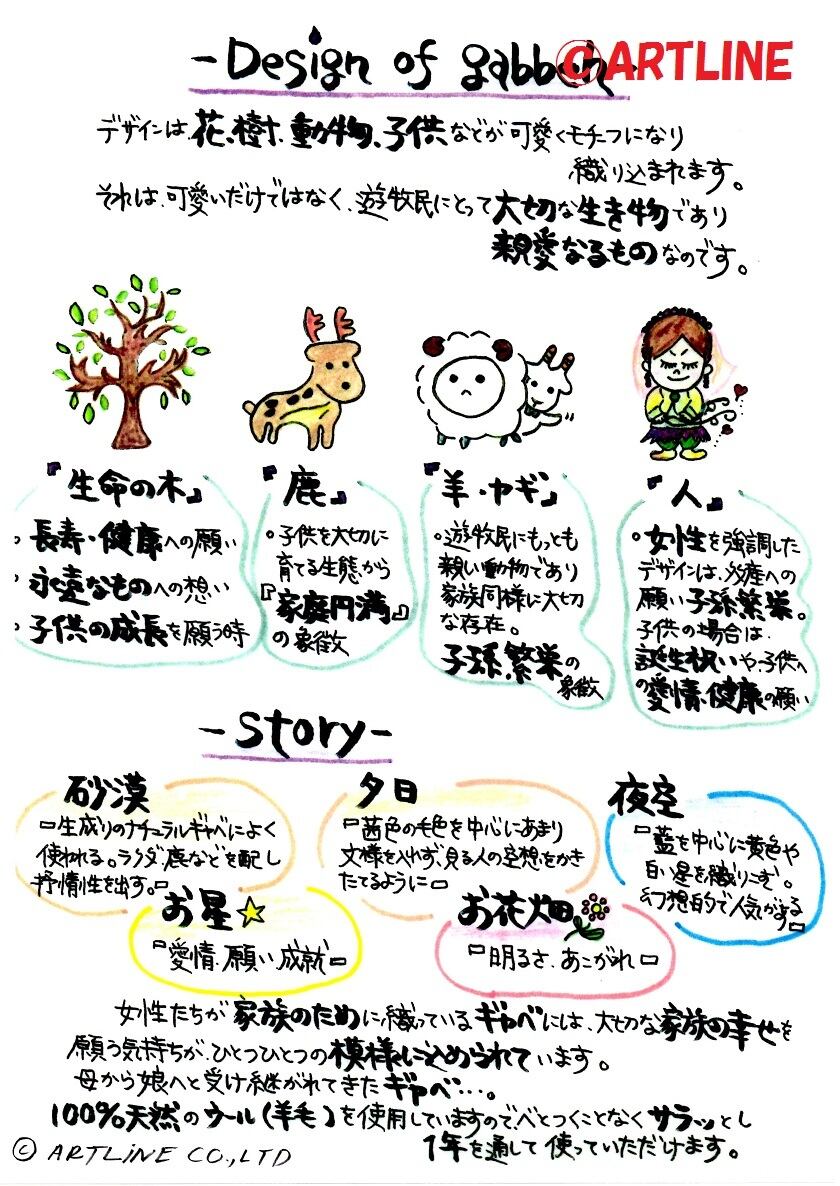 -Design of gabbeh-
©ARTLINE
デザインは、花、樹、動物、子供などが可愛くモチーフになり
織り込まれます。
それは、可愛いだけではなく、遊牧民にとって大切な生き物であり
親愛なるものなのです。
『生命の木』
長寿・健康への願い
永遠なものへの想い
子供の成長を願う時
『鹿』
。子供を大切に
育てる生態から
『家庭円満』
の象徴
『羊・ヤギ』
。遊牧民にもっとも
親しい動物であり
家族同様に大切
な存在。
子孫繁栄の
象徴
『人』
。女性を強調した
デザインは、多産への
願い子孫繁栄。
子供の場合は、
誕生祝いや、子供へ
の愛情、健康の願い
-Story-
砂漠
「生成りのナチュラルギャベによく
使われる。ラクダ、鹿などを配し
抒情性を出す。」
夕日
「茜色の毛色を中心にあまり
文様を入れず、見る人の空想をかき
たてるように」
夜空
「藍を中心に黄色や
白い星を織りこむ。
幻想的で人気がある」
お星☆
「愛情、願い、成就」
お花畑
「明るさ、あこがれ」
女性たちが家族のために織っているギャベには、大切な家族の幸せを
願う気持ちが、ひとつひとつの模様に込められています。
母から娘へと受け継がれてきたギャベ…。
100%天然のウール(羊毛)を使用していますので、べとつくことなくサラッとし
1年を通して使っていただけます。
© ARTLINE CO.,LTD